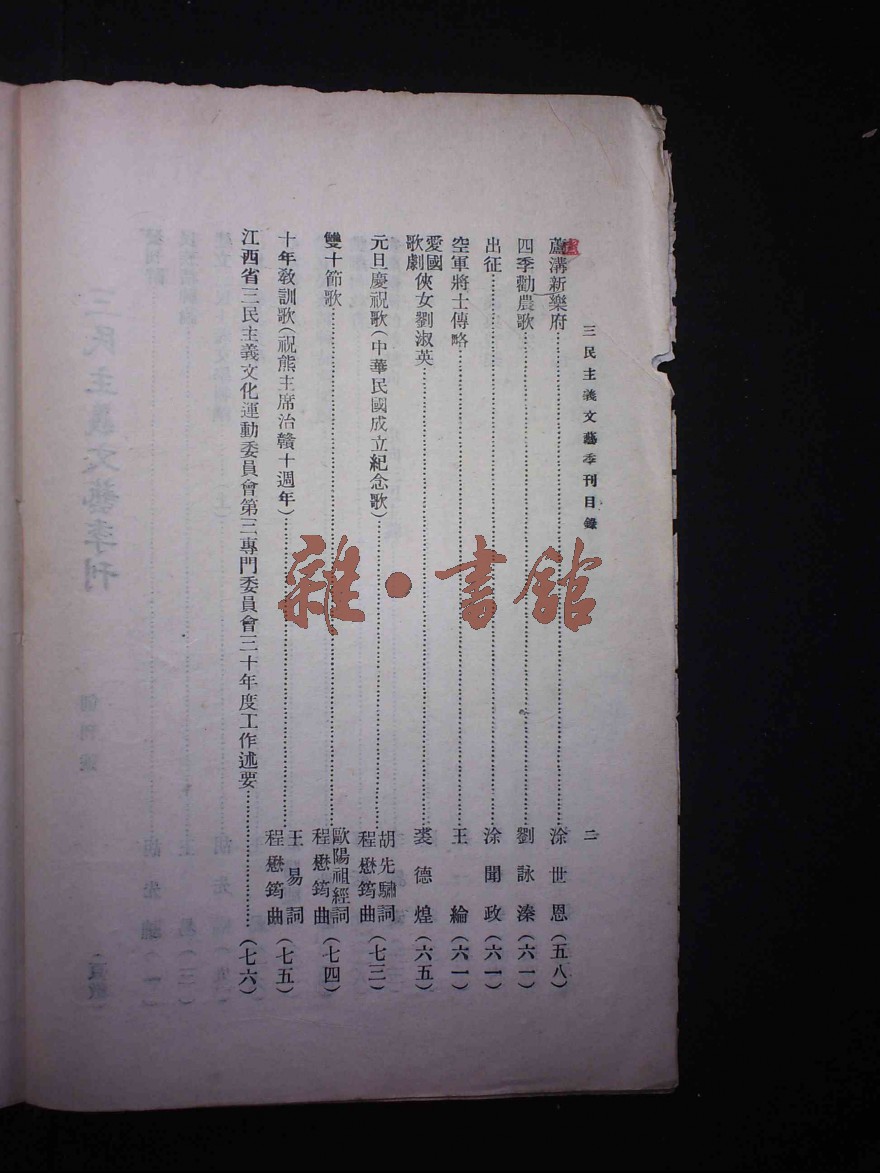 三民主義文藝季刊目錄
二
蘆溝新樂府……涂世恩(五八)
盧
四季勸農歌……劉詠溱(六一)
出征……涂聞政(六一)
空軍將士傳略……王綸(六一)
愛國歌劇俠女劉淑英……裘德煌(六五)
元旦慶祝歌(中華民國成立紀念歌)……胡先驌詞程懋筠曲(七三)
雙十節歌……歐陽祖經詞程懋筠曲(七四)
十年教訓歌(祝熊主席治贛十週年)……王易詞程懋筠曲(七五)
江西省三民主義文化運動委員會第三專門委員會三十年度工作述要……(七六)
雜·書館
三民主義文藝季刊
創刊號